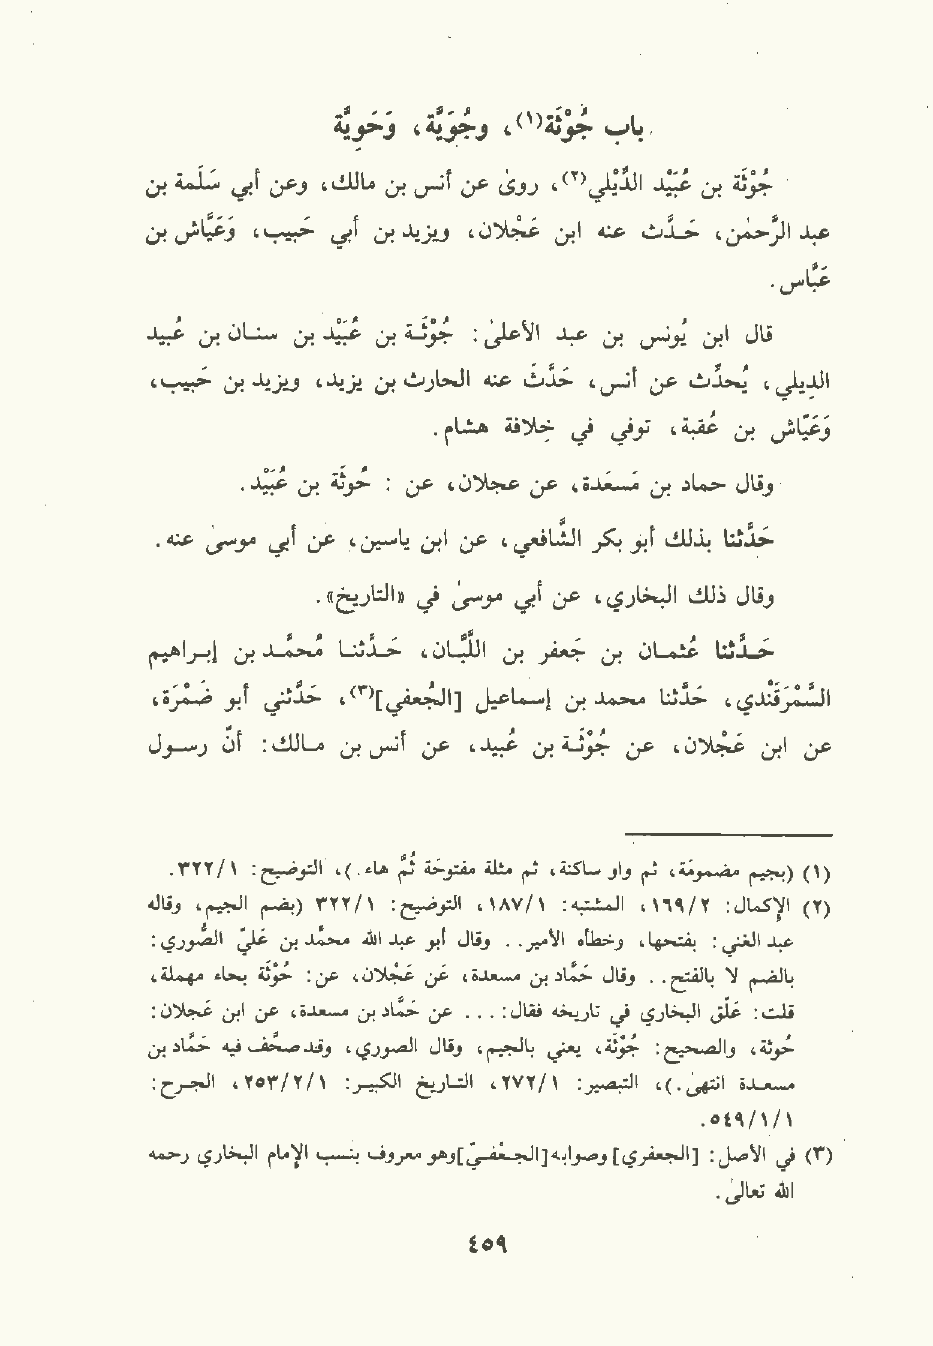 باب جُوْثَة(١)، وجُوَيَّة، وَحَوِيَّة
جُوْثَة بن عُبَيْد الدِّيْلي(٢)، روىٰ عن أنس بن مالك، وعن أبي سَلَمة بن
عبد الرَّحمٰن، حَدَّث عنه ابن عَجْلان، ويزيد بن أبي حَبيب، وَعَيَّاش بن
عبَّاس.
قال ابن يُونس بن عبد الأعلىٰ: جُوْثَـة بن عُبَيْد بن سنـان بن عُبيد
الدِيلي، يُحدِّث عن أنس، حَدَّثَ عنه الحارث بن يزيد، ويزيد بن حَبيب،
وَعَيَّاش بن عُقبة، توفي في خلافة هشام.
وقال حماد بن مَسعَدة، عن عجلان، عن : حُوثَة بن عُبَيْد.
حَدَّثنا بذلك أبو بكر الشَّافعي، عن ابن ياسين، عن أبي موسىٰ عنه.
وقال ذلك البخاري، عن أبي موسىٰ في «التاريخ».
حَـدَّثنا عُثمـان بن جَعفر بن اللَّبَّان، حَـدَّثنـا مُحمَّـد بن إبـراهيم
السَّمْرَقَنْدي، حَدَّثنا محمد بن إسماعيل [الجُعفي](٣)، حَدَّثني أبو ضَمْرَة،
عن ابن عَجْلان، عن جُوْثَـة بن عُبيد، عن أنس بن مالـك: أنَّ رسـول
(١) (بجيم مضمومَة، ثم واو ساكنة، ثم مثلثة مفتوحَة ثُمَّ هاء.)، التوضيح: ٣٢٢/١.
(٢) الإكمال: ١٦٩/٢، المشتبه: ١٨٧/١، التوضيح: ٣٢٢/١ (بضم الجيم، وقاله
عبد الغني: بفتحها، وخطأه الأمير.. وقال أبو عبد الله محمَّد بن عَليّ الصُّوري:
بالضم لا بالفتح.. وقال حَمَّاد بن مسعدة، عَن عَجْلان، عن: حُوْثَة بحاء مهملة،
قلت: عَلَّق البخاري في تاريخه فقال: ... عن حَمَّاد بن مسعدة، عن ابن عَجلان:
حُوثة، والصحيح: جُوْثَة، يعني بالجيم، وقال الصوري، وقد صحف فيه حَمَّاد بن
مسعـدة انتهىٰ.)، التبصير: ٢٧٢/١، التـاريخ الكبيـر: ٢٥٣/٢/١، الجـرح:
٥٤٩/١/١.
(٣) في الأصل: [الجعفري] وصوابه [الجـعْفـيّ] وهو معروف بنسب الإمام البخاري رحمه
الله تعالىٰ.
٤٥٩